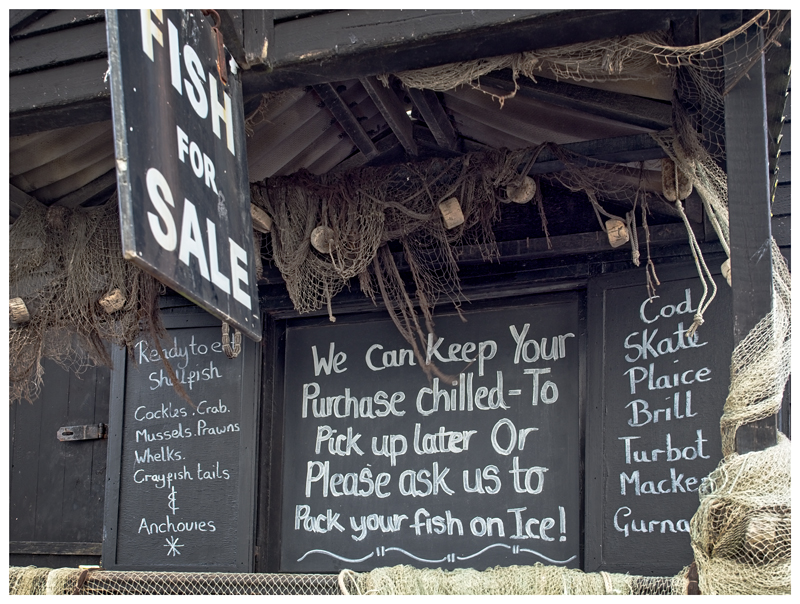 FISH
FOR
SALE
Ready to e
Shellfish
Cockles. Crab.
Mussels. Prawns
Whelks.
Crayfish tails
&
Anchovies
We Can Keep Your
Purchase chilled-To
Pick up later Or
Please ask us to
Pack your fish on Ice!
Cod
Skate
Plaice
Brill
Turbot
Macke
Gurna